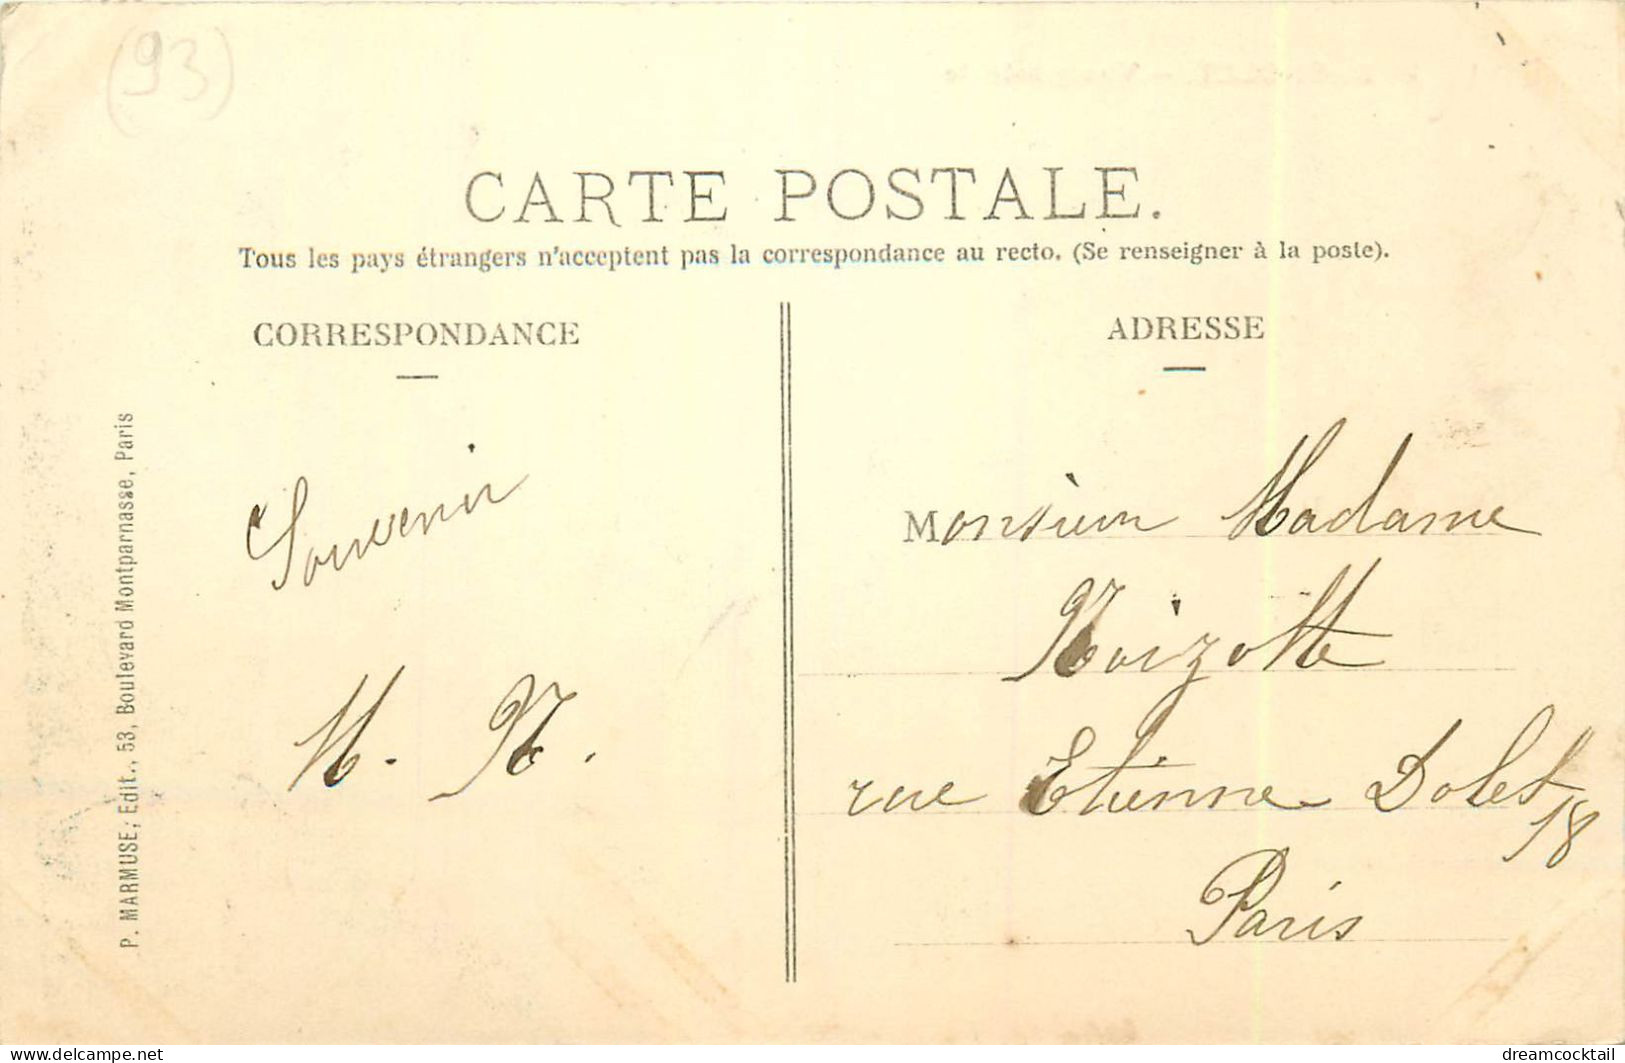 (93)
CARTE POSTALE.
Tous les pays étrangers n'acceptent pas la correspondance au recto. (Se renseigner à la poste).
CORRESPONDANCE
Souvenir
M. N.
ADRESSE
Monsieur Madame
Noizotte
rue Etienne Dolet
18
Paris
P. MARMUSE, Edit., 53, Boulevard Montparnasse, Paris
www.delcampe.net
dreamcocktail